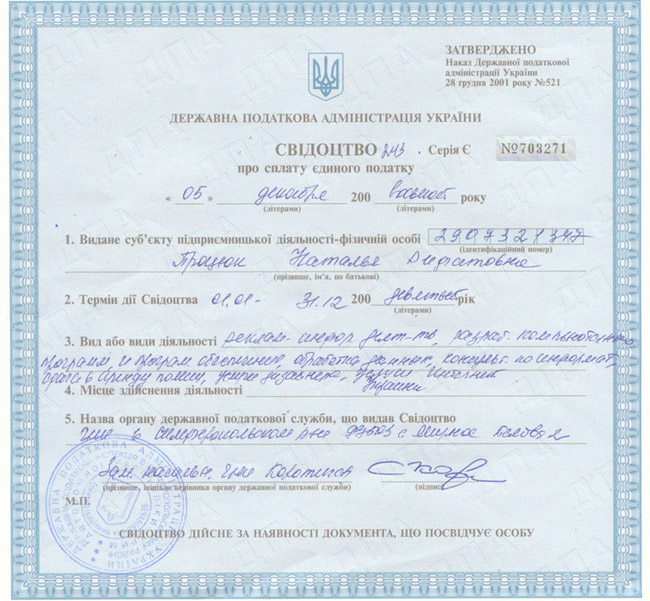 ЗАТВЕРДЖЕНО
Наказ Державної податкової
адміністрації України
28 грудня 2001 року №521
ДЕРЖАВНА ПОДАТКОВА АДМІНІСТРАЦІЯ УКРАЇНИ
СВІДОЦТВО 243 . Серія Є №703271
про сплату єдиного податку
« 05 » декабря 200 восьмого року
(літерами) (літерами)
1. Видане суб'єкту підприємницької діяльності-фізичній особі 2907328347
(ідентифікаційний номер)
Наталья
(прізвище, ім'я, по батькові)
2. Термін дії Свідоцтва 01.01- 31.12 200 девятый рік
(літерами)
3. Вид або види діяльності реклам-
программ, и програм. обеспечения, обработка данных, консульт. по информат,
сдача в аренду помещ, услуги дизайнера, услуги Интернет
4. Місце здійснення діяльності Украина
5. Назва органу державної податкової служби, що видав Свідоцтво
в Симферопольском с. Мирное
Зам
(прізвище, підпис керівника органу державної податкової служби) (підпис)
М.П.
СВІДОЦТВО ДІЙСНЕ ЗА НАЯВНОСТІ ДОКУМЕНТА, ЩО ПОСВІДЧУЄ ОСОБУ